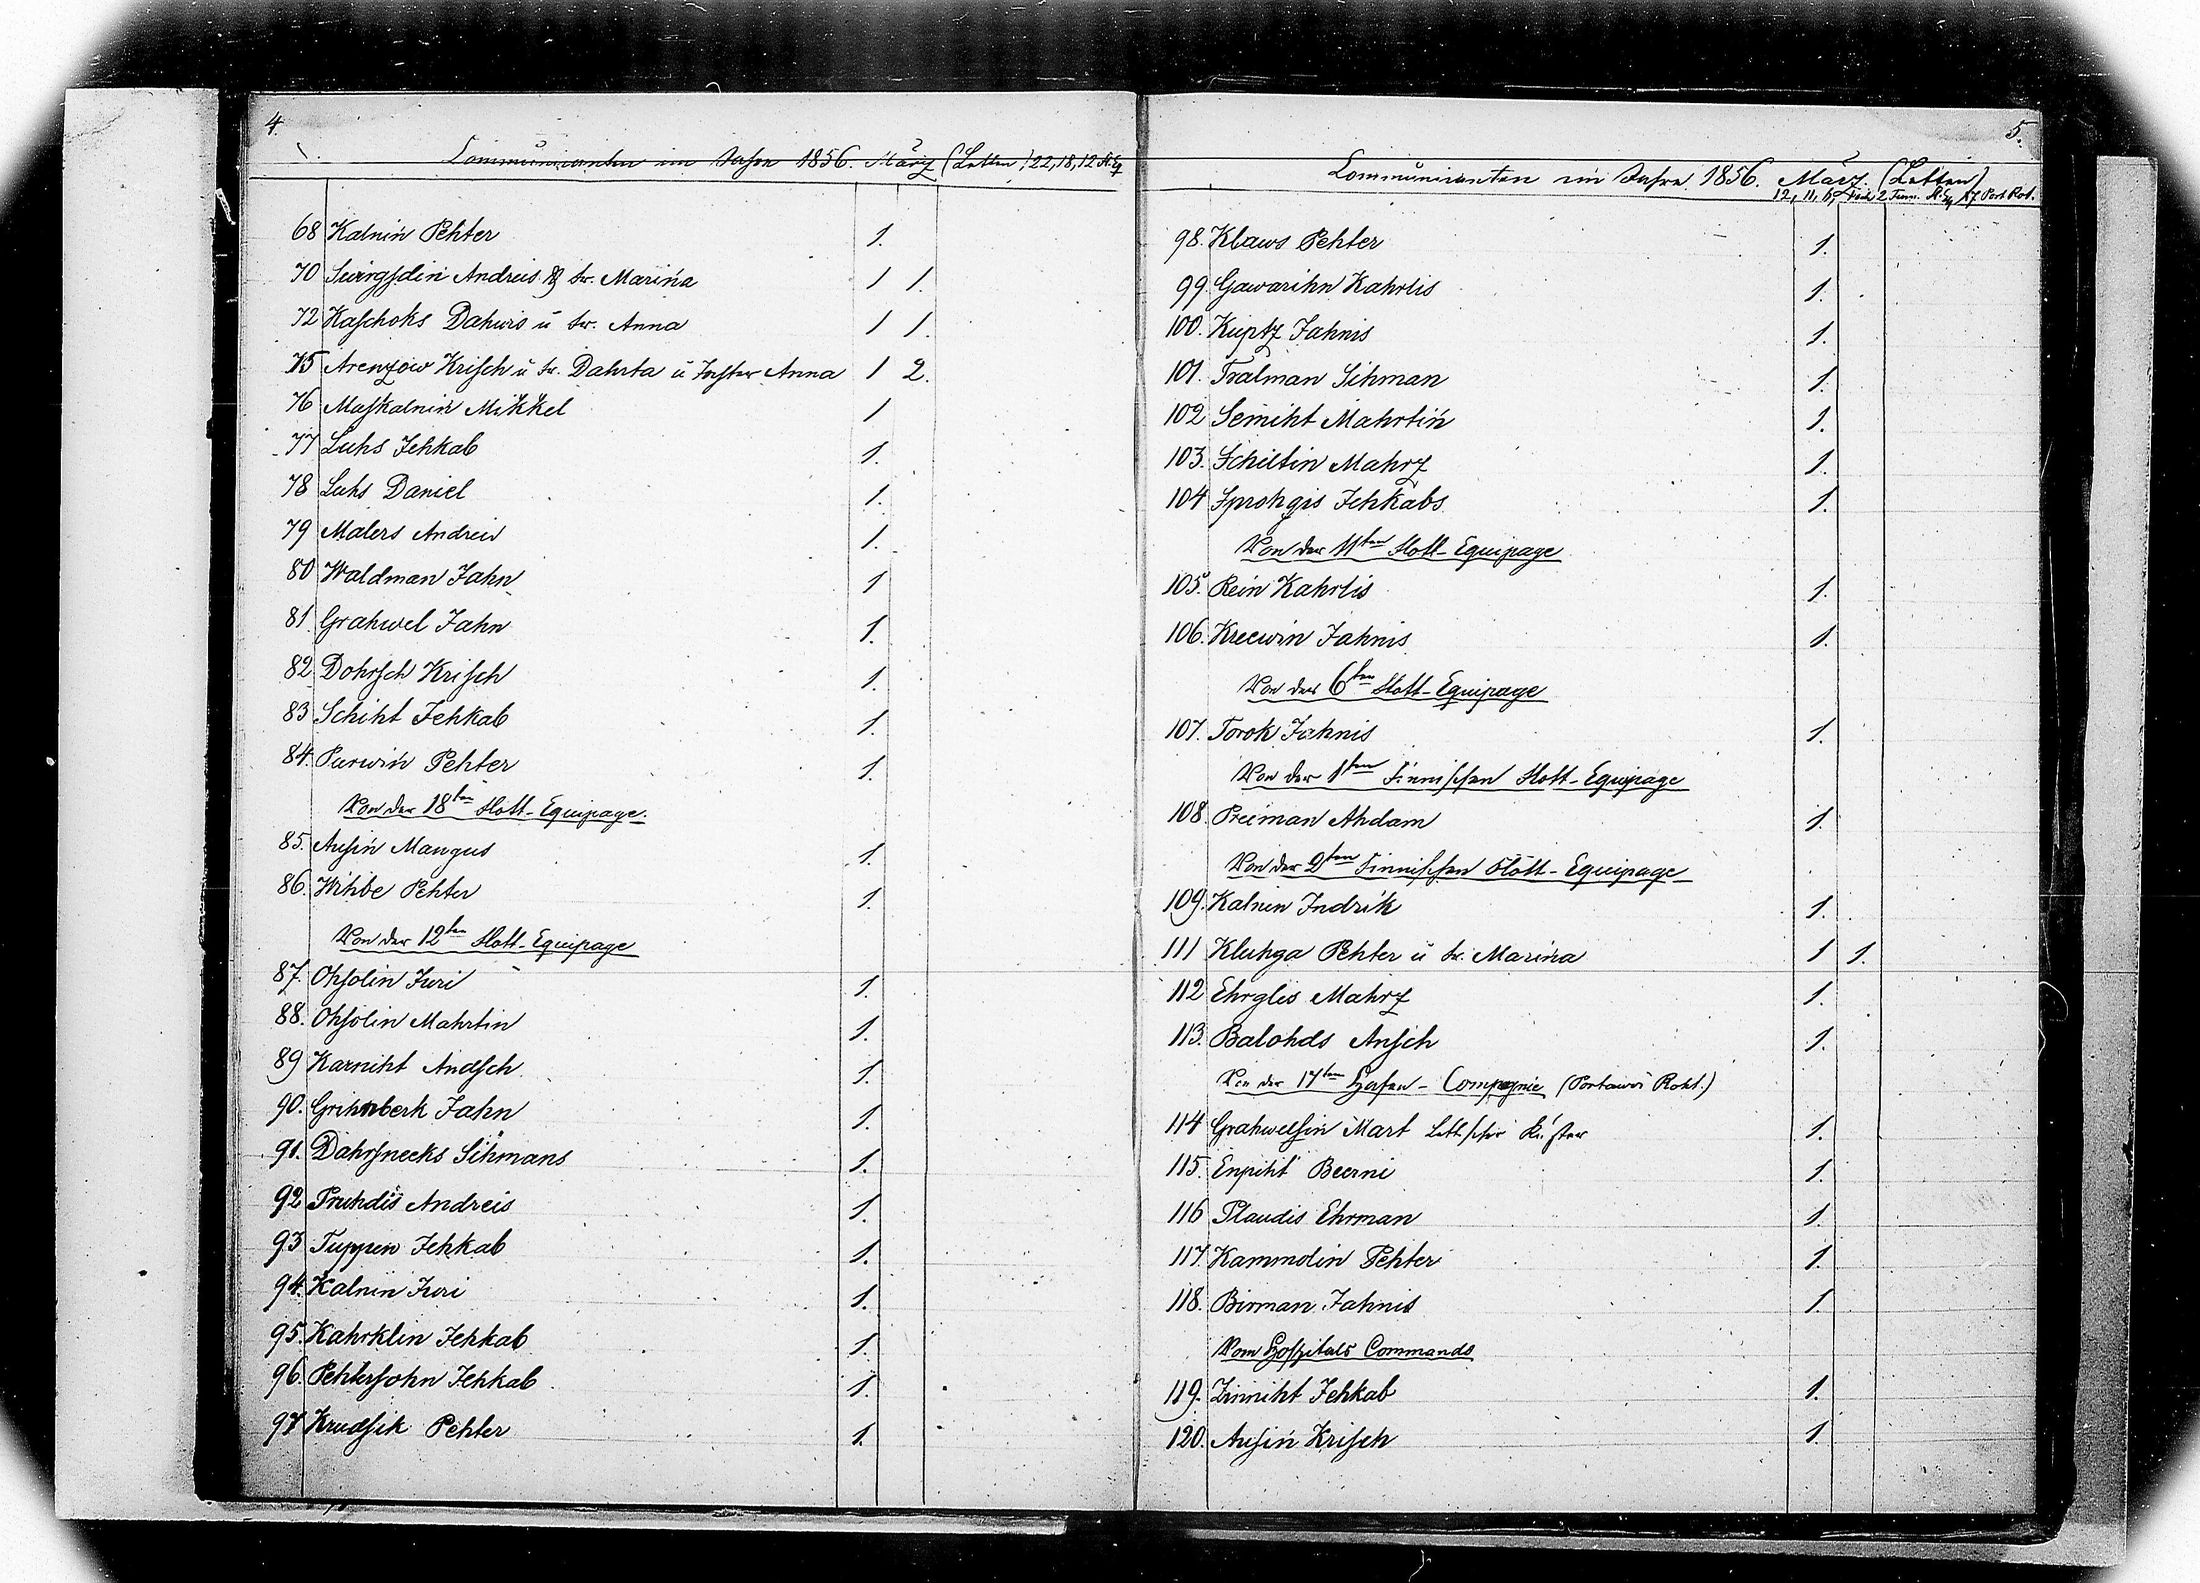 4.
Communicanten im Jahre 1856. März (Letten) 22, 18, 12 Fl. Eq
68 Kalniń Pehter 1.
70 Swirgsdin Andreis & fr. Marińa 1 1.
72 Kaschoks Dahwis u fr. Anna 1 1.
75 Arenzow Krisch u fr. Dahrta u Tochter Anna 1 2.
76 Maskalniń Mikkel 1
77 Luhs Jehkab 1.
78 Luhs Daniel 1.
79 Malers Andrew 1.
80 Waldman Jahn 1
81 Grahwel Jahn 1.
82 Dohrsch Krisch 1.
83 Schiht Jehkab 1.
84. Purwiń Pehter 1.
Von der 18ten Flott-Equipage.
85. Ausiń Mangus 1.
86. Wihbe Pehter 1.
Von der 12ten Flott-Equipage
87. Ohsolin Juri 1.
88. Ohsolin Mahrtin 1.
89 Karniht Andsch 1.
90. Grihnberk Jahn 1.
91. Dahrsneeks Sihmans 1.
92 Pruhdis Andreis 1.
93 Tuppen Jehkab 1.
94. Kalnin Juri 1.
95. Kahrklin Jehkab 1.
96. Pehtersohn Jehkab 1.
97 Krudsik Pehter 1.
5.
Communicanten im Jahre 1856. März. (Letten)
12, 11, 6, 1 und 2 Finn. Fl. Eq 17 Port Rot.
98. Klaws Pehter 1.
99. Gawarihn Kahrlis 1.
100. Kuptz Jahnis 1.
101. Tralman Sihman 1.
102 Semiht Mahrtiń 1.
103. Schiltin Mahrz 1.
104 Sprohgis Jehkabs 1.
Von der 11ten Flott-Equipage
105. Rein Kahrlis 1.
106. Kreewin Jahnis 1.
Von der 6ten Flott-Equipage
107. Torok Jahnis 1.
Von der 1ten Finnischen Flott-Equipage
108. Preiman Ahdam 1.
Von der 2ten Finnischen Flott-Equipage
109. Kalnin Indrik 1.
111 Kluhga Pehter u fr. Marińa 1 1.
112 Ehrglis Mahrz 1.
113. Balohds Ansch 1.
Von der 17ten Hafen-Compagnie (Portawoi Roht.)
114 Grahwelsin Mart Lettscher Küster 1.
115. Enpiht Beerni 1.
116 Plaudis Ehrman 1.
117. Kammolin Pehter 1.
118. Birman Jahnis 1
Vom Hospitals Commando
119. Zimiht Jehkab 1.
120. Ausiń Krisch 1.